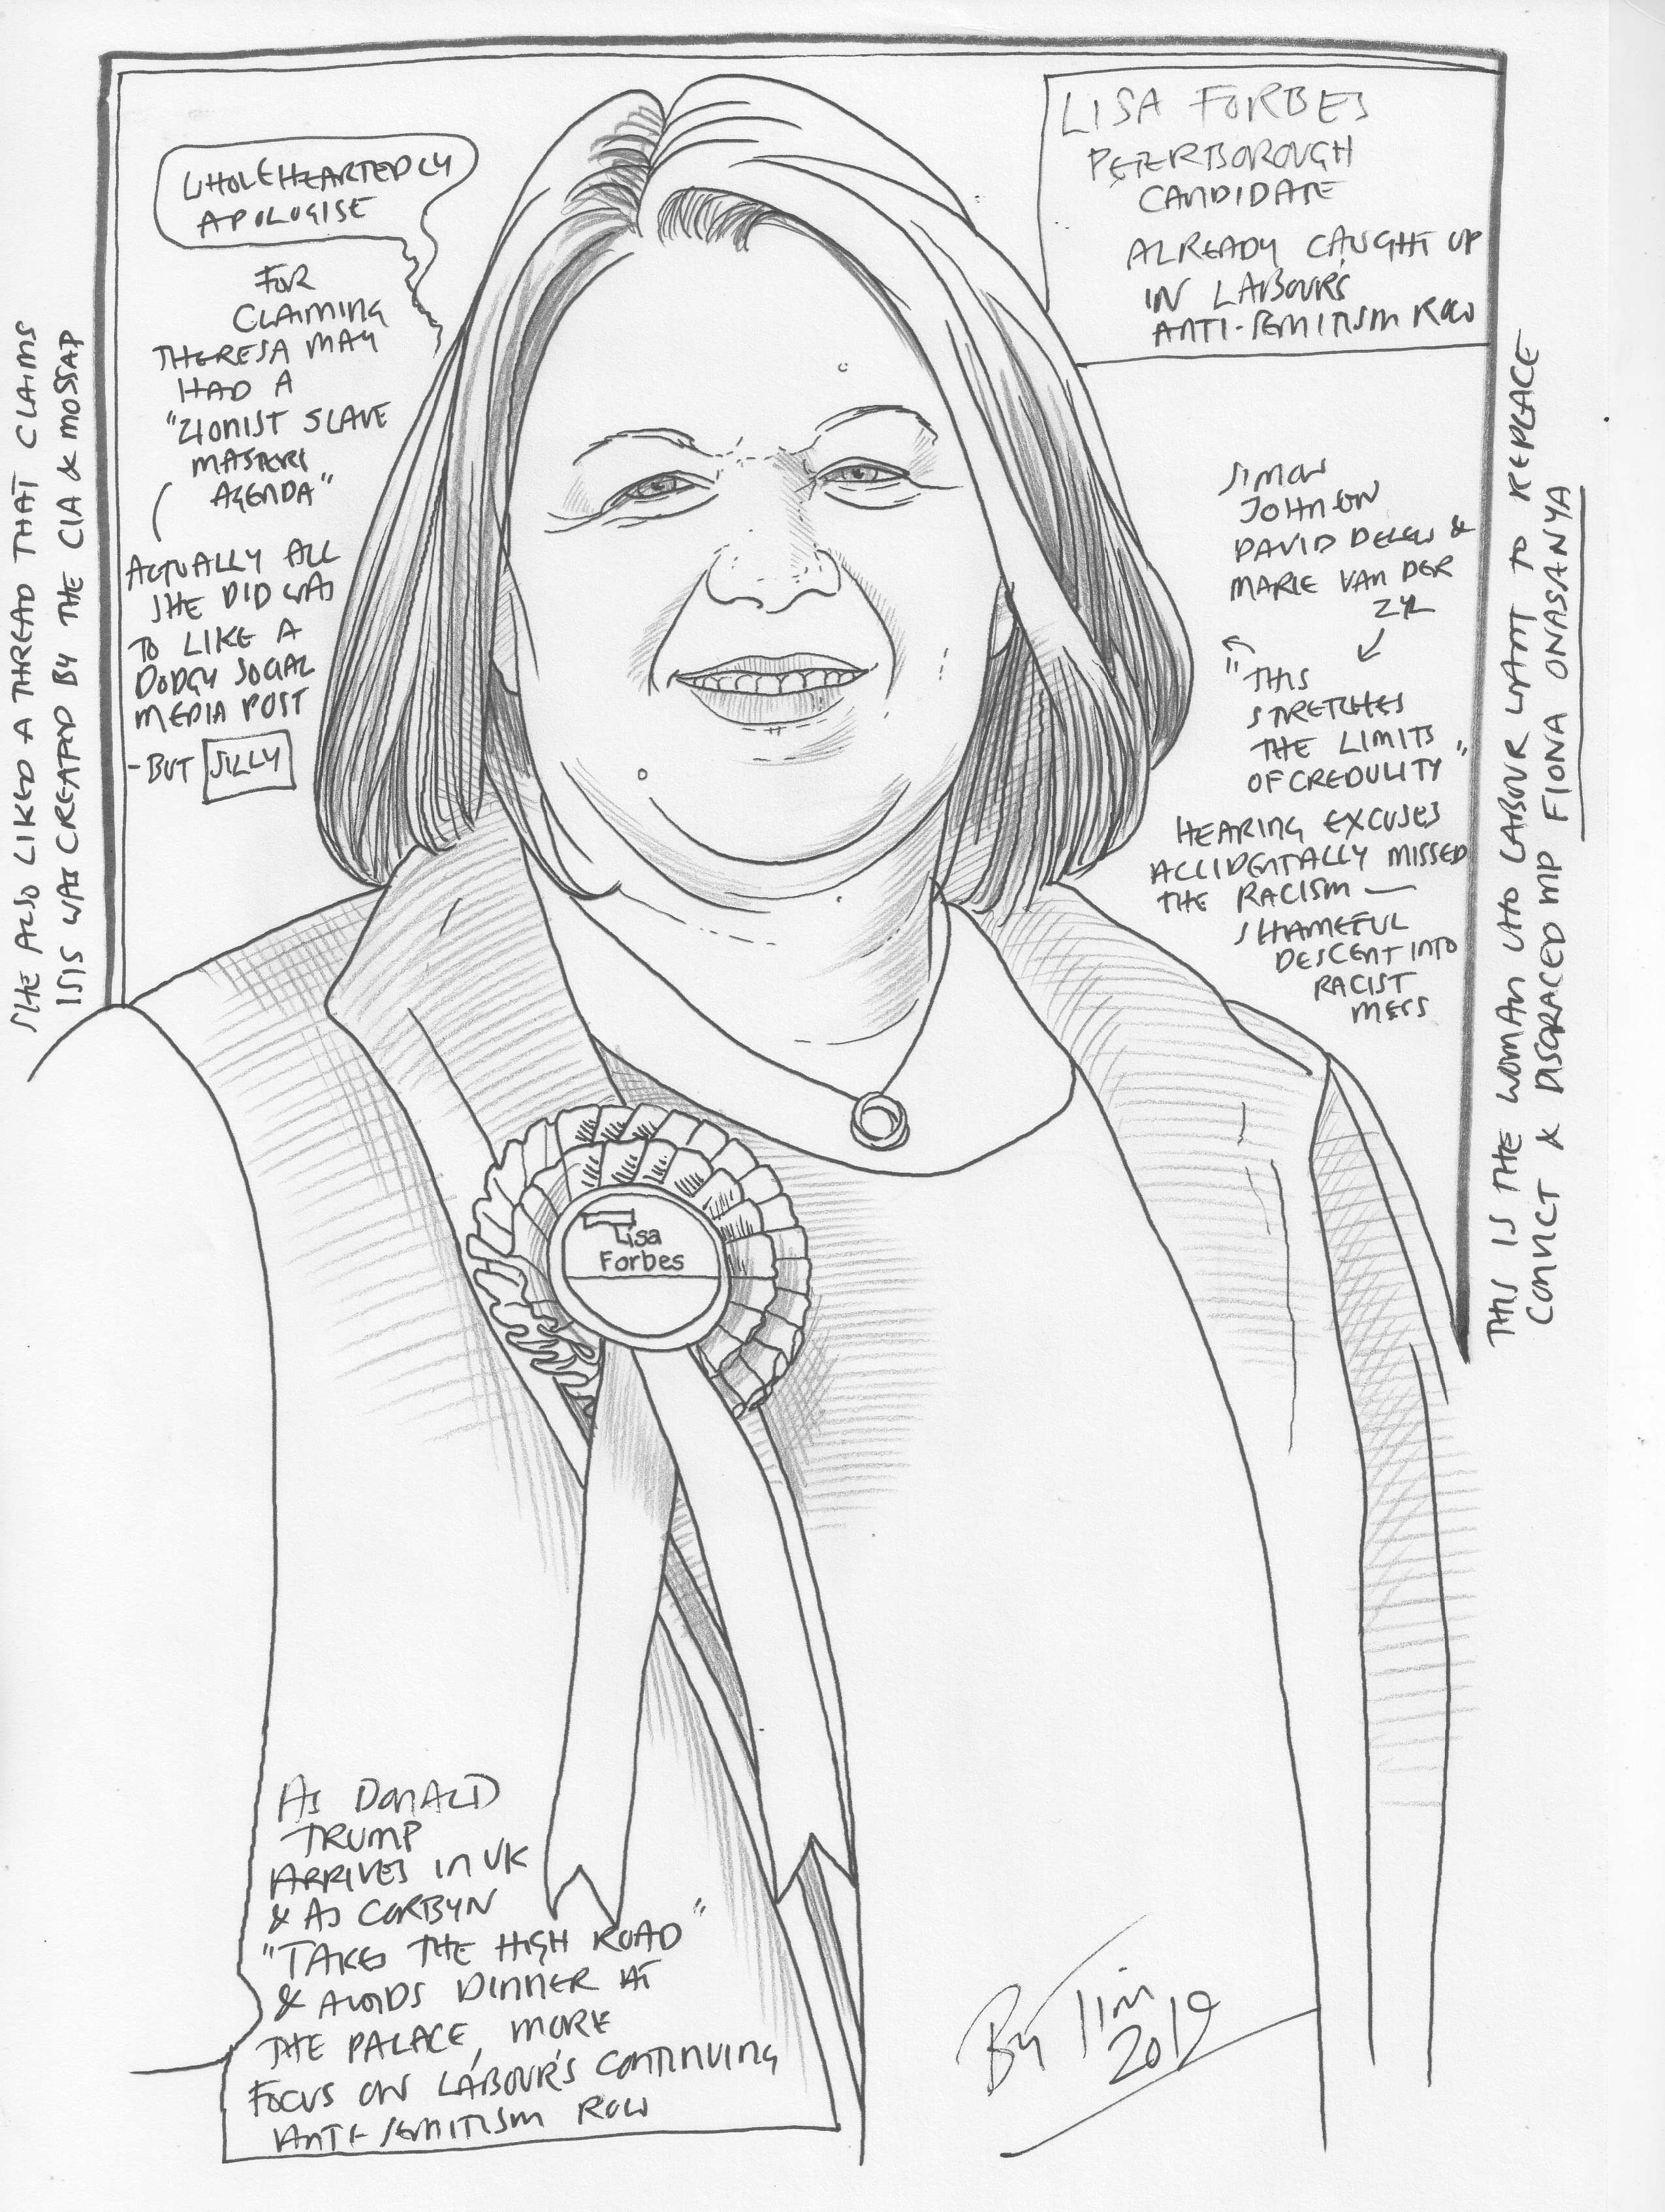 LISA FORBES
PETERBOROUGH
CANDIDATE
ALREADY CAUGHT UP
IN LABOUR'S
ANTI-SEMITISM ROW
WHOLEHEARTEDLY
APOLOGISE
FOR
CLAIMING
THERESA MAY
HAD A
"ZIONIST SLAVE
MASTERS
AGENDA"
ACTUALLY ALL
SHE DID WAS
TO LIKE A
DODGY SOCIAL
MEDIA POST
- BUT SILLY
SHE ALSO LIKED A THREAD THAT CLAIMS
ISIS WAS CREATED BY THE CIA & MOSSAD
SIMON
JOHNSON
DAVID DELEW &
MARIE VAN DER
ZYL
"THIS
STRETCHES
THE LIMITS
OF CREDULITY"
HEARING EXCUSES
ACCIDENTALLY MISSED
THE RACISM —
SHAMEFUL
DESCENT INTO
RACIST
MESS
THIS IS THE WOMAN WHO LABOUR WANT TO REPLACE
CONVICT & DISGRACED MP FIONA ONASANYA
Lisa
Forbes
AS DONALD
TRUMP
ARRIVES IN UK
& AS CORBYN
"TAKES THE HIGH ROAD"
& AVOIDS DINNER AT
THE PALACE, MORE
FOCUS ON LABOUR'S CONTINUING
ANTI-SEMITISM ROW
By Tim
2019